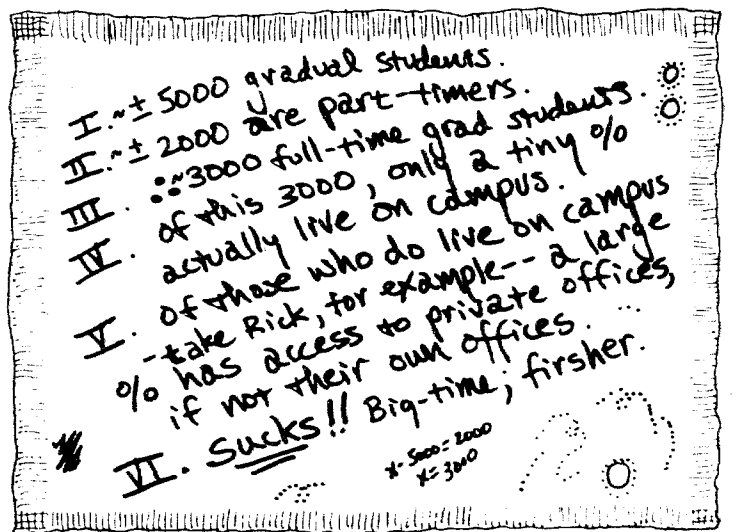 I. ~± 5000 gradual students.
II. ~± 2000 are part-timers.
III. ∴ ~3000 full-time grad students.
IV. of this 3000, only a tiny %
actually live on campus.
V. of those who do live on campus
-take Rick, for example-- a large
% has access to private offices,
if not their own offices.
VI. Sucks!! Big-time; firsher.
x-5000=2000
x=3000